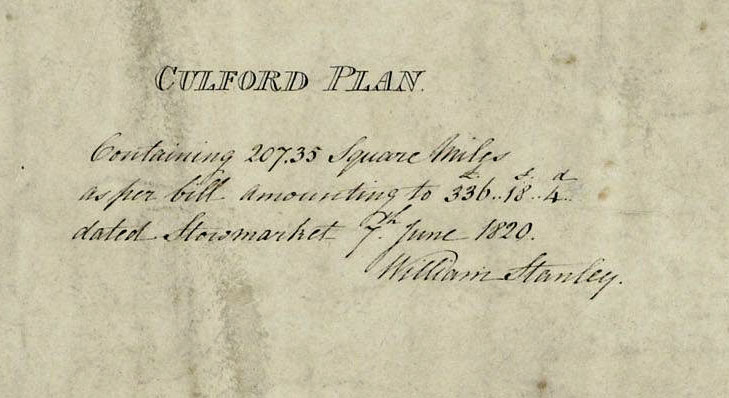 CULFORD PLAN.
Containing 207.35 Square Miles
as per bill amounting to £336..18s..4d
dated Stowmarket 7th June 1820.
William Stanley.